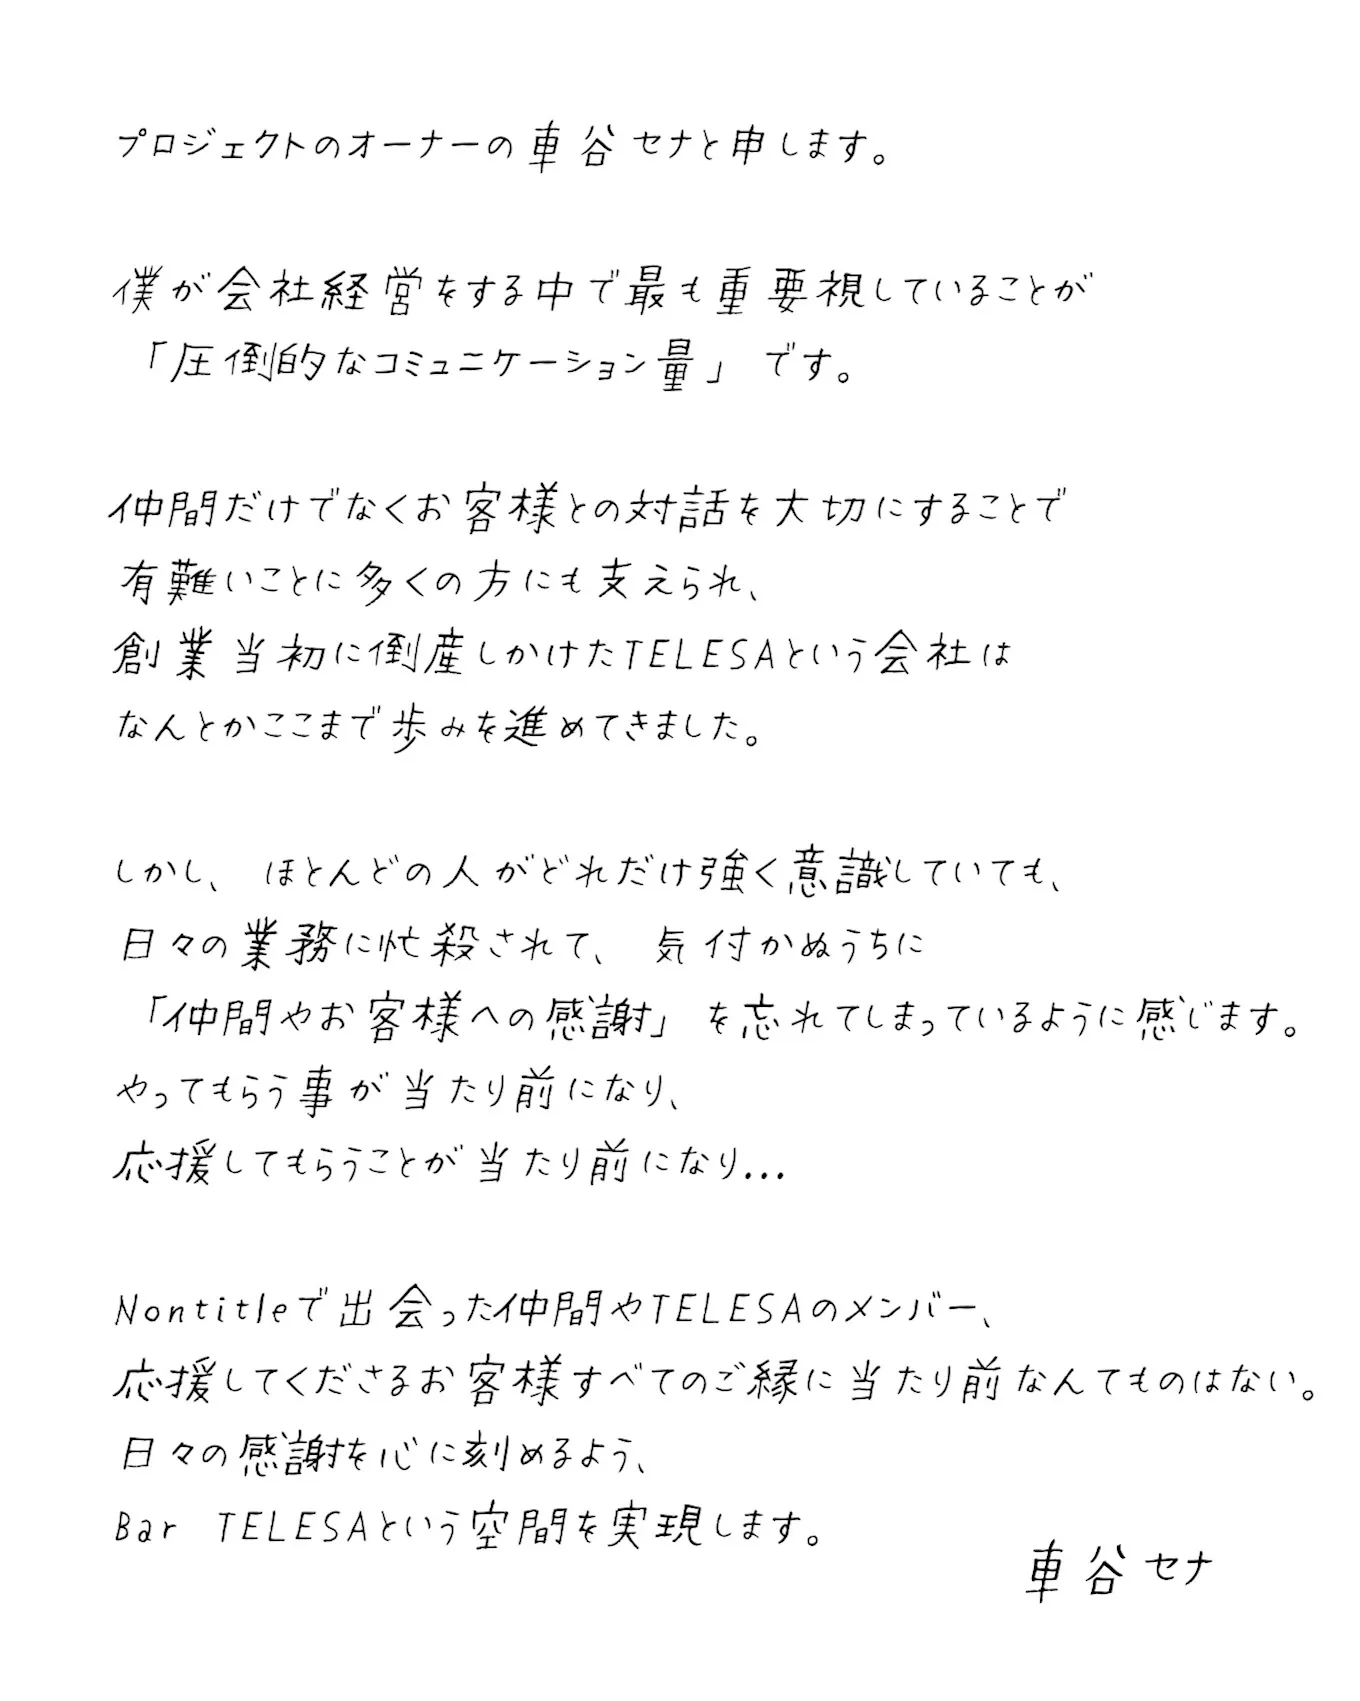 プロジェクトのオーナーの車谷セナと申します。
僕が会社経営をする中で最も重要視していることが
「圧倒的なコミュニケーション量」です。
仲間だけでなくお客様との対話を大切にすることで
有難いことに多くの方にも支えられ、
創業当初に倒産しかけたTELESAという会社は
なんとかここまで歩みを進めてきました。
しかし、ほとんどの人がどれだけ強く意識していても、
日々の業務に忙殺されて、気付かぬうちに
「仲間やお客様への感謝」を忘れてしまっているように感じます。
やってもらう事が当たり前になり、
応援してもらうことが当たり前になり...
Nontitleで出会った仲間やTELESAのメンバー、
応援してくださるお客様すべてのご縁に当たり前なんてものはない。
日々の感謝を心に刻めるよう、
Bar TELESAという空間を実現します。
車谷セナ